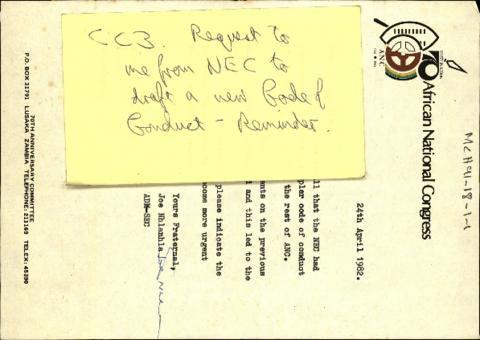 CC3. Request to
me from NEC to
draft a new Code of
Conduct - Reminder.
MCH91-18-1-1
African National Congress
ANC
24th April 1982.
ll that the NEC had
pler code of conduct
the rest of ANC.
ents on the previous
and this led to the
please indicate the
ecome more urgent
Yours Fraternal,
Joe Nhlanhla
ADM-SEC
70TH ANNIVERSARY COMMITTEE
P.O. BOX 31791 LUSAKA ZAMBIA TELEPHONE: 211169 TELEX: 45390